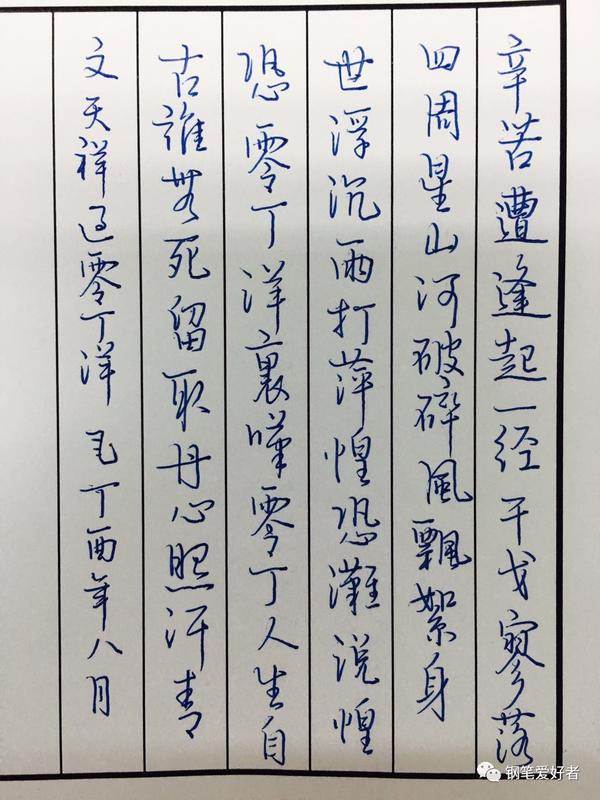 辛苦遭逢起一经干戈寥落
四周星山河破碎風飄絮身
世浮沉雨打萍惶恐灘说惶
恐零丁洋裏嘆零丁人生自
古誰无死留取丹心照汗青
文天祥过零丁洋 丁酉年八月
钢笔爱好者